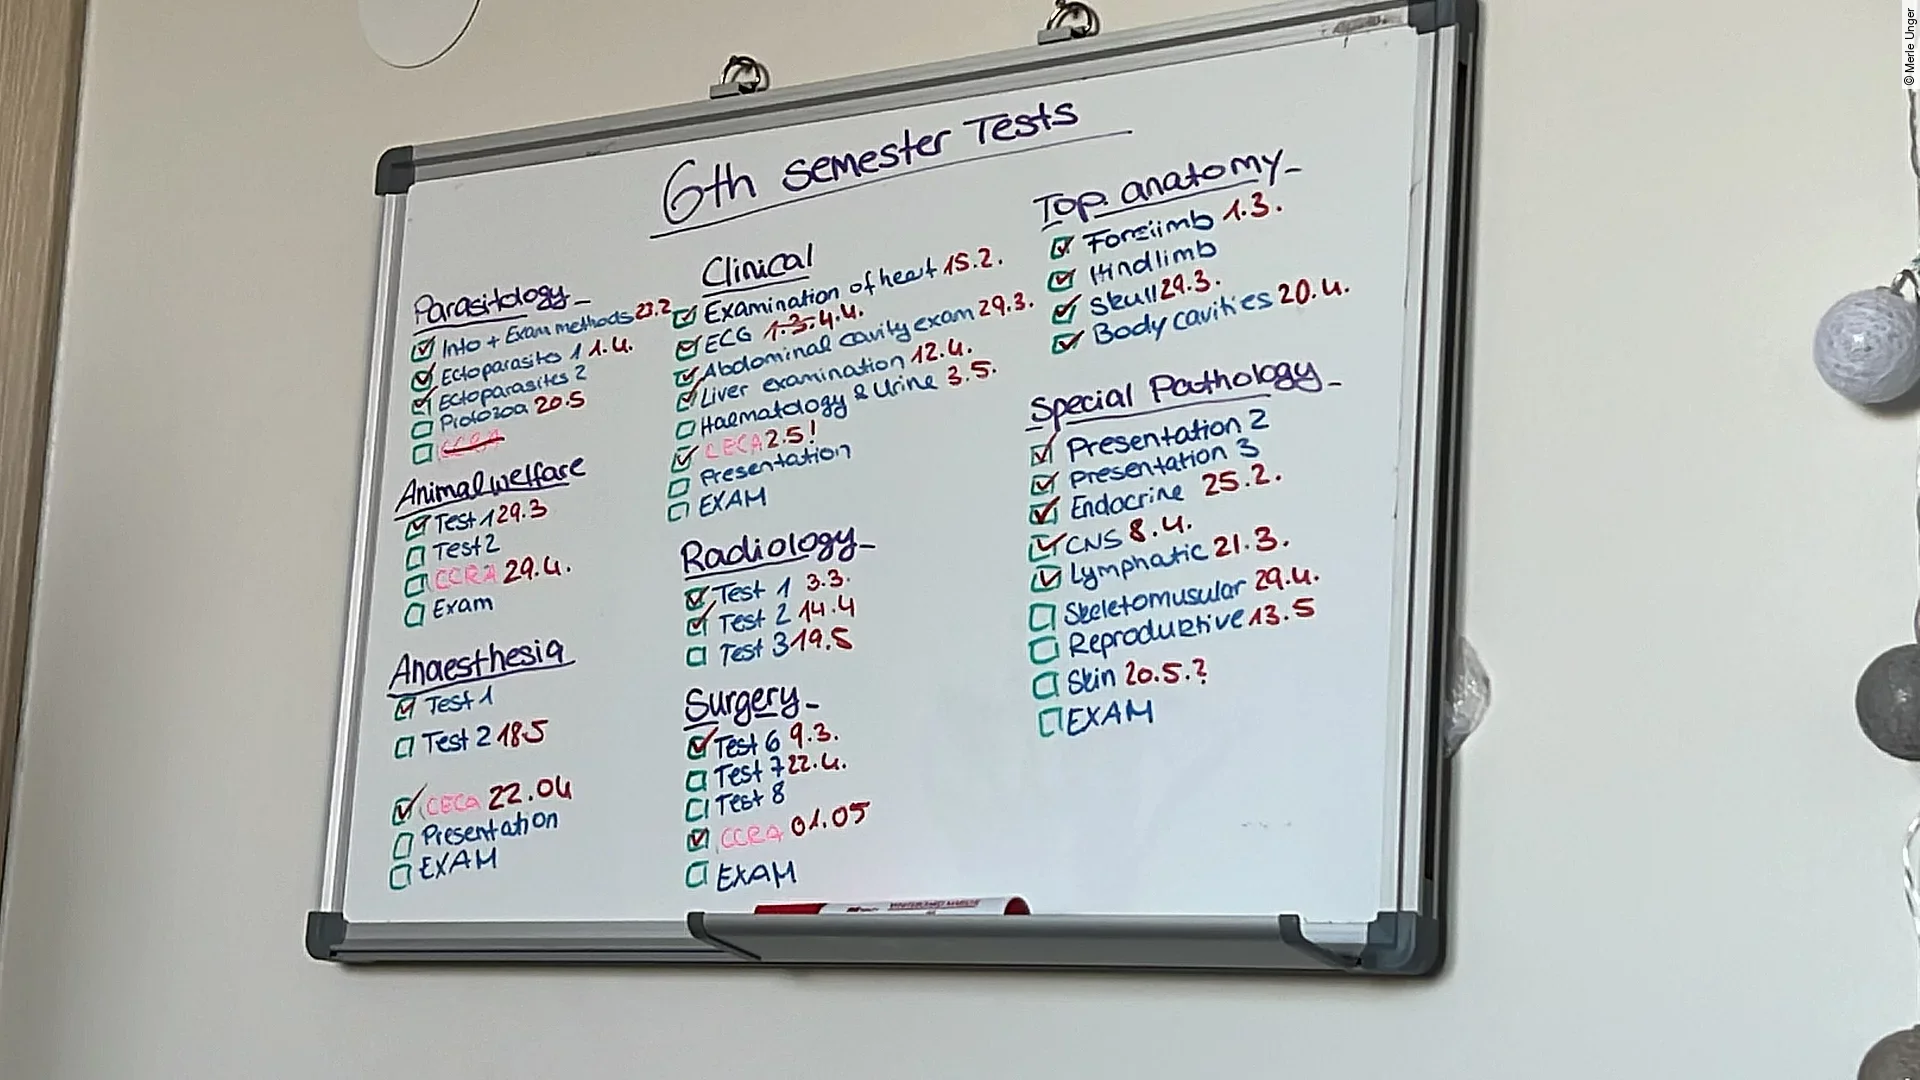 © Merle Unger
6th semester Tests
Parasitology
Into + Exam methods 23.2
Ectoparasites 1 1.4.
Ectoparasites 2
Protozoa 20.5
CCRA
Animal welfare
Test 1 29.3
Test 2
CCRA 29.4.
Exam
Anaesthesia
Test 1
Test 2 18.5
CECA 22.04
Presentation
EXAM
Clinical
Examination of heart 15.2.
ECG 1.3. 4.4.
Abdominal cavity exam 29.3.
Liver examination 12.4.
Haematology & Urine 3.5.
CECA 2.5!
Presentation
EXAM
Radiology
Test 1 3.3.
Test 2 14.4
Test 3 19.5
Surgery
Test 6 9.3.
Test 7 22.4.
Test 8
CCRA 01.05
EXAM
Top. anatomy
Forelimb 1.3.
Hindlimb
Skull 29.3.
Body cavities 20.4.
Special Pathology
Presentation 2
Presentation 3
Endocrine 25.2.
CNS 8.4.
Lymphatic 21.3.
Skeletomusular 29.4.
Reproduktive 13.5
Skin 20.5.?
EXAM